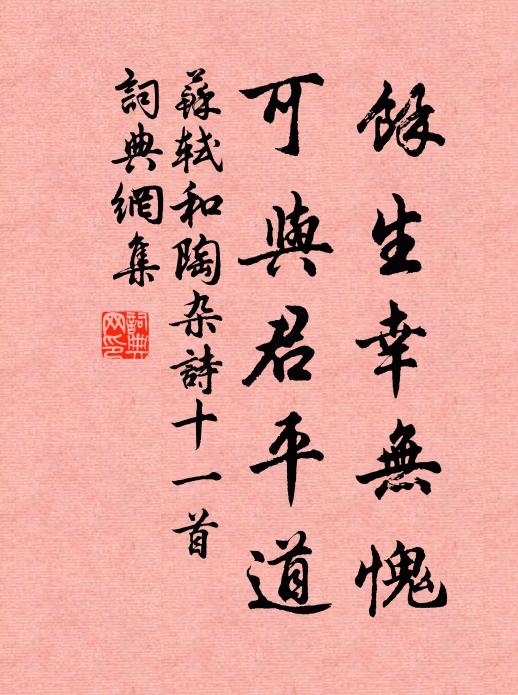 餘生幸無愧
可與君平道
蘇軾和陶杂詩十一首
詞典網集
詞典
网印